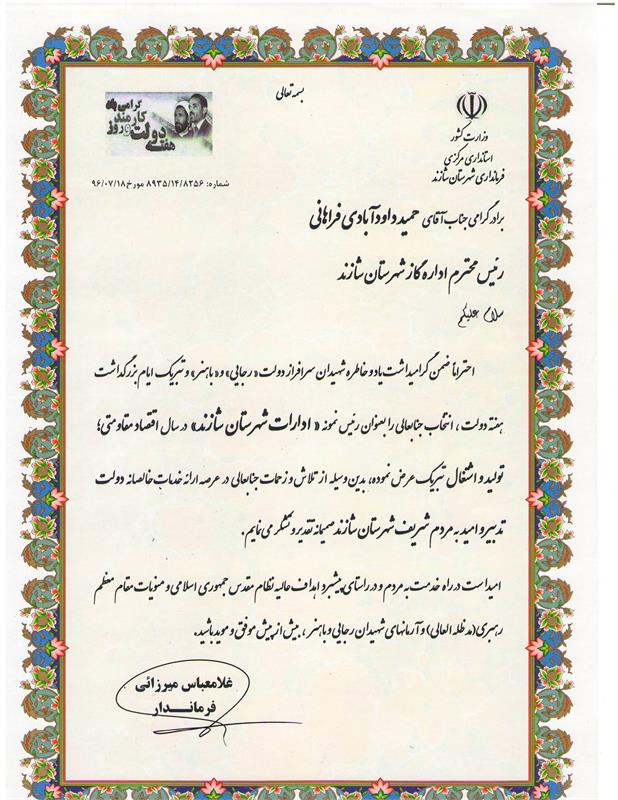 بسمه تعالی
گرامی باد
کارمند
هفته دولت و روز
وزارت کشور
استانداری مرکزی
فرمانداری شهرستان شازند
شماره: ۸۹۳۵/۱۴/۸۲۵۶ مورخ ۹۶/۰۷/۱۸
برادر گرامی جناب آقای حمید داودآبادی فراهانی
رئیس محترم اداره گاز شهرستان شازند
سلام علیکم
احتراماً ضمن گرامیداشت یاد و خاطره شهیدان سرافراز دولت «رجایی» و «باهنر» و تبریک ایام بزرگداشت
هفته دولت، انتخاب جنابعالی را بعنوان رئیس نمونه «ادارات شهرستان شازند» در سال اقتصاد مقاومتی؛
تولید و اشتغال تبریک عرض نموده، بدین وسیله از تلاش و زحمات جنابعالی در عرصه ارائه خدمات خالصانه دولت
تدبیر و امید به مردم شریف شهرستان شازند صمیمانه تقدیر و تشکر می نمایم.
امید است در راه خدمت به مردم و در راستای پیشبرد اهداف عالیه نظام مقدس جمهوری اسلامی و منویات مقام معظم
رهبری (مد ظله العالی) و آرمانهای شهیدان رجایی و باهنر، بیش از پیش موفق و موید باشید.
غلامعباس میرزائی
فرمانــدار